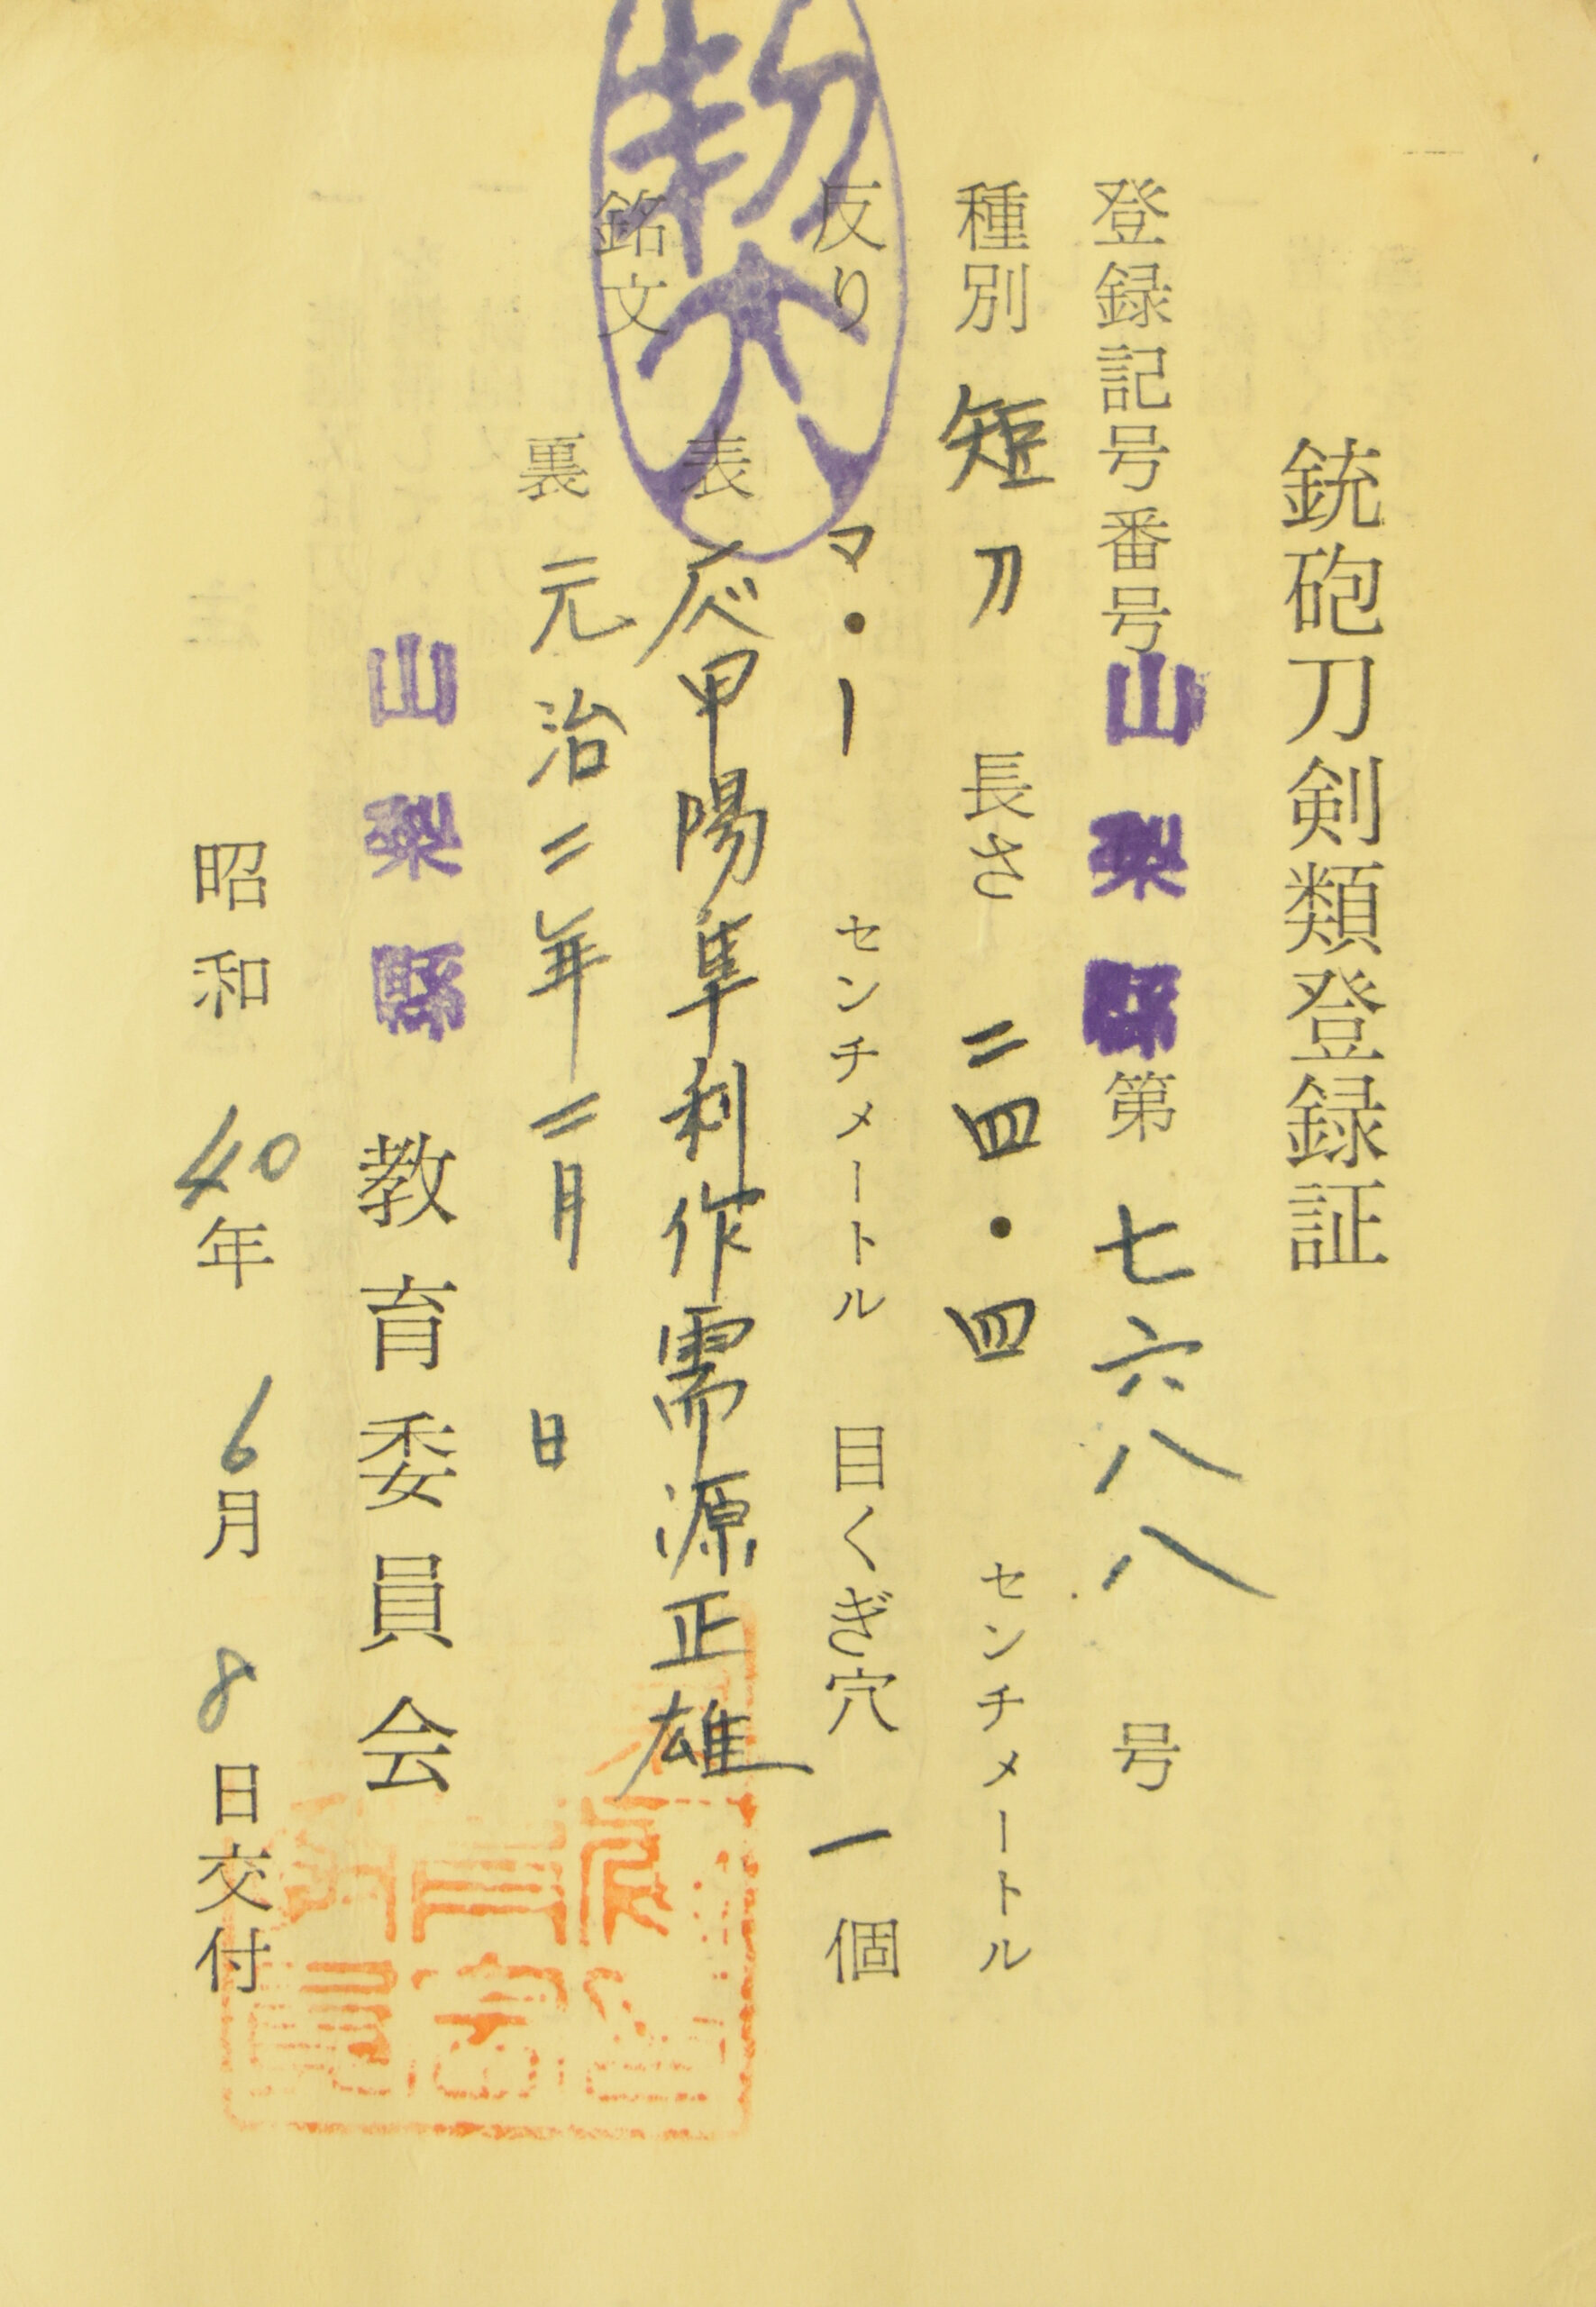 銃砲刀剣類登録証
登録記号番号 山梨縣 第 七六八八 号
種別 短刀 長さ 二四・四 センチメートル
反り マ・ー センチメートル 目くぎ穴 一 個
銘文
表 応甲陽隼利作需源正雄
裏 元治二年二月 日
山梨縣教育委員会
昭和 40年 6月 8日交付